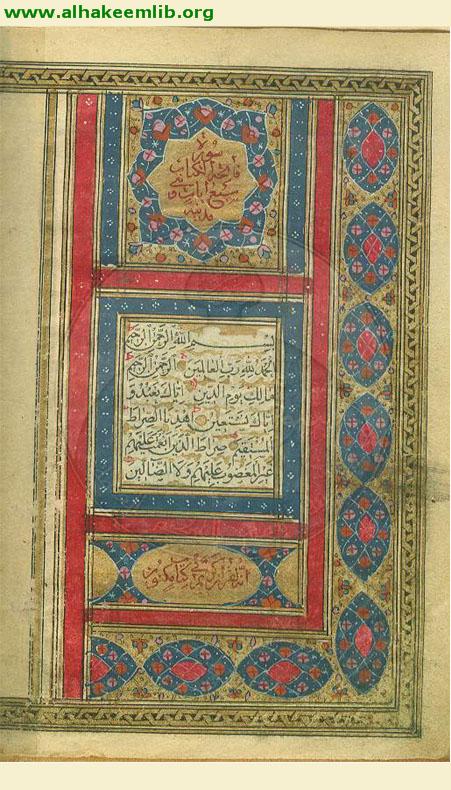 www.alhakeemlib.org
سورة
فاتحة الكتاب
سبع ايات
بسم الله الرحمن الرحيم
الحمد لله رب العالمين الرحمن الرحيم
مالك يوم الدين اياك نعبد و
اياك نستعين اهدنا الصراط
المستقيم صراط الذين انعمت عليهم
غير المغضوب عليهم ولا الضالين
انه لقرآن كريم في كتاب مكنون